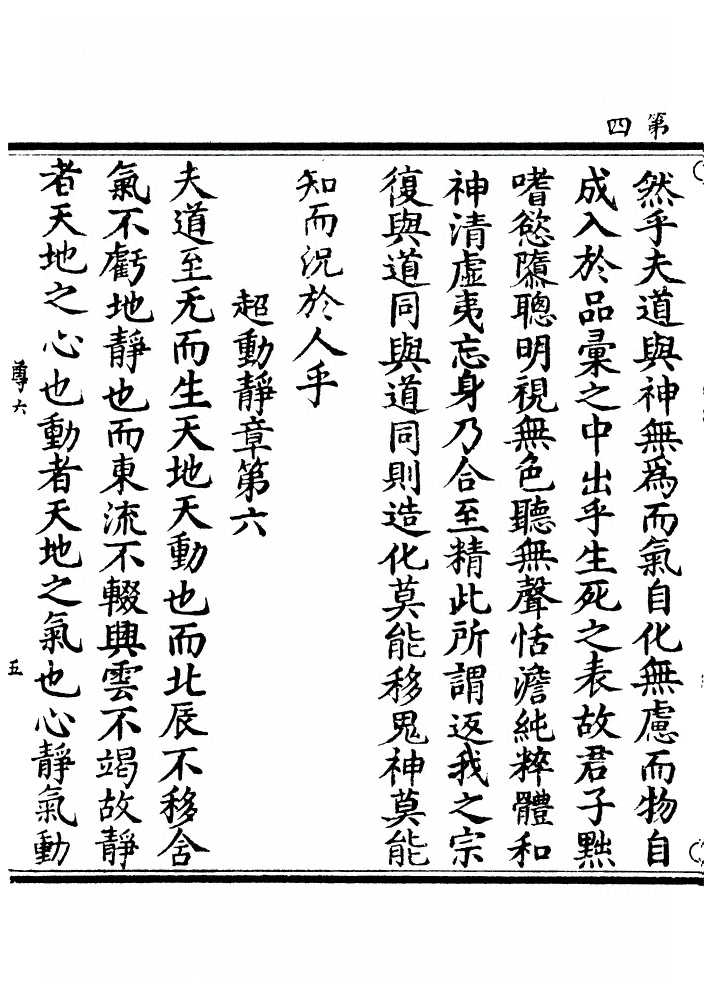 第四
然乎夫道與神無為而氣自化無慮而物自
成入於品彙之中出乎生死之表故君子黜
嗜慾隳聰明視無色聽無聲恬澹純粹體和
神清虛夷忘身乃合至精此所謂返我之宗
復與道同與道同則造化莫能移鬼神莫能
知而況於人乎
超動靜章第六
夫道至无而生天地天動也而北辰不移含
氣不虧地靜也而東流不輟興雲不竭故靜
者天地之心也動者天地之氣也心靜氣動
尊六
五